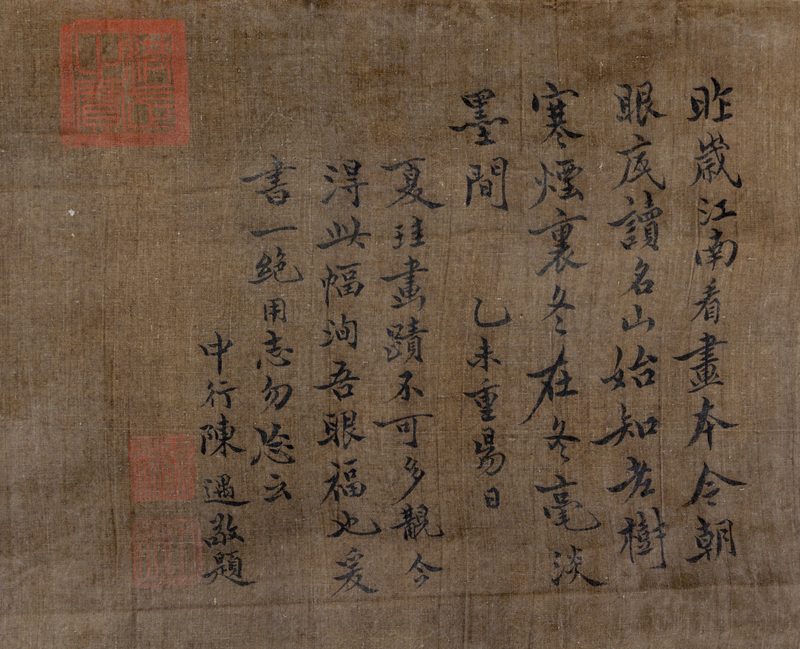 昨歲江南看畫本今朝
眼底讀名山始知老樹
寒煙裏冬在冬毫淡
墨間 乙未重昜日
夏珪畫蹟不可多覯今
淂此幅洵吾眼福也爰
書一絕用志勿云
中行陳遇敬題